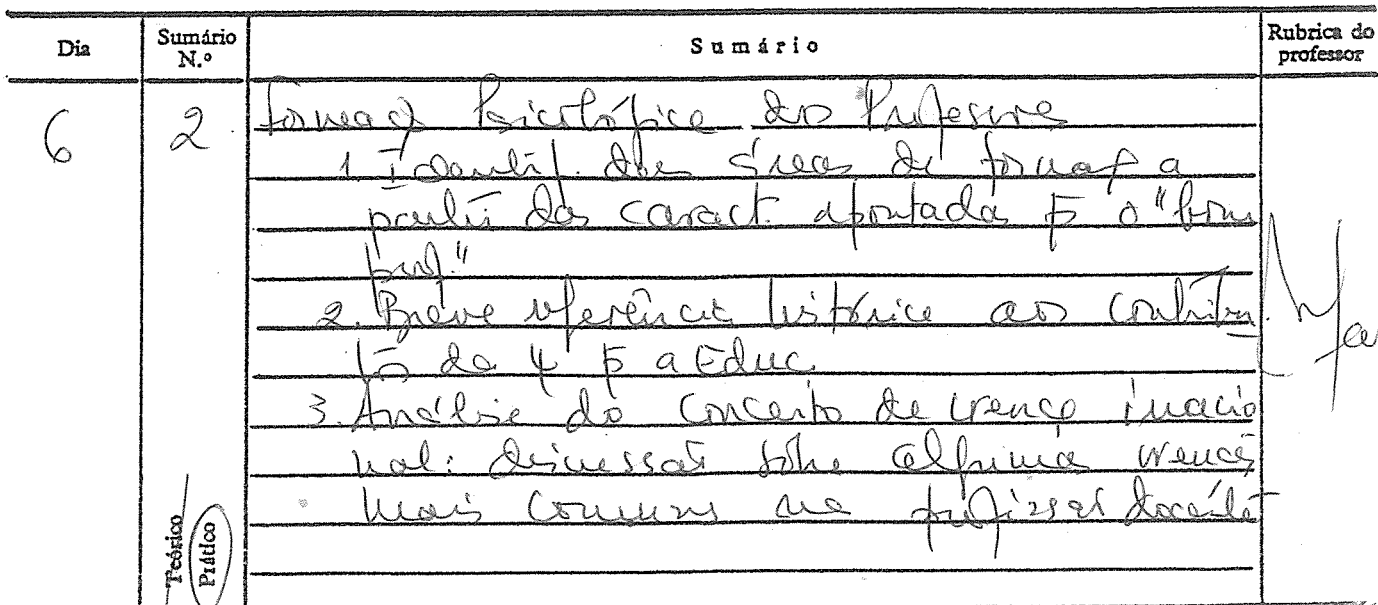 Dia Sumário N.º Sumário Rubrica do professor
6 2. Formaçã Psicológica dos Professores
1. Identif. das áreas de formaç a
partir das caract. apontadas p o "bom
prof."
2. Breve referência histórica aos contribu
tos da ψ p a Educ.
3. Análise do conceito de crença irracio
nal: discussão sobre algumas crenças
mais comuns na profissão docente
Teórico
Prático